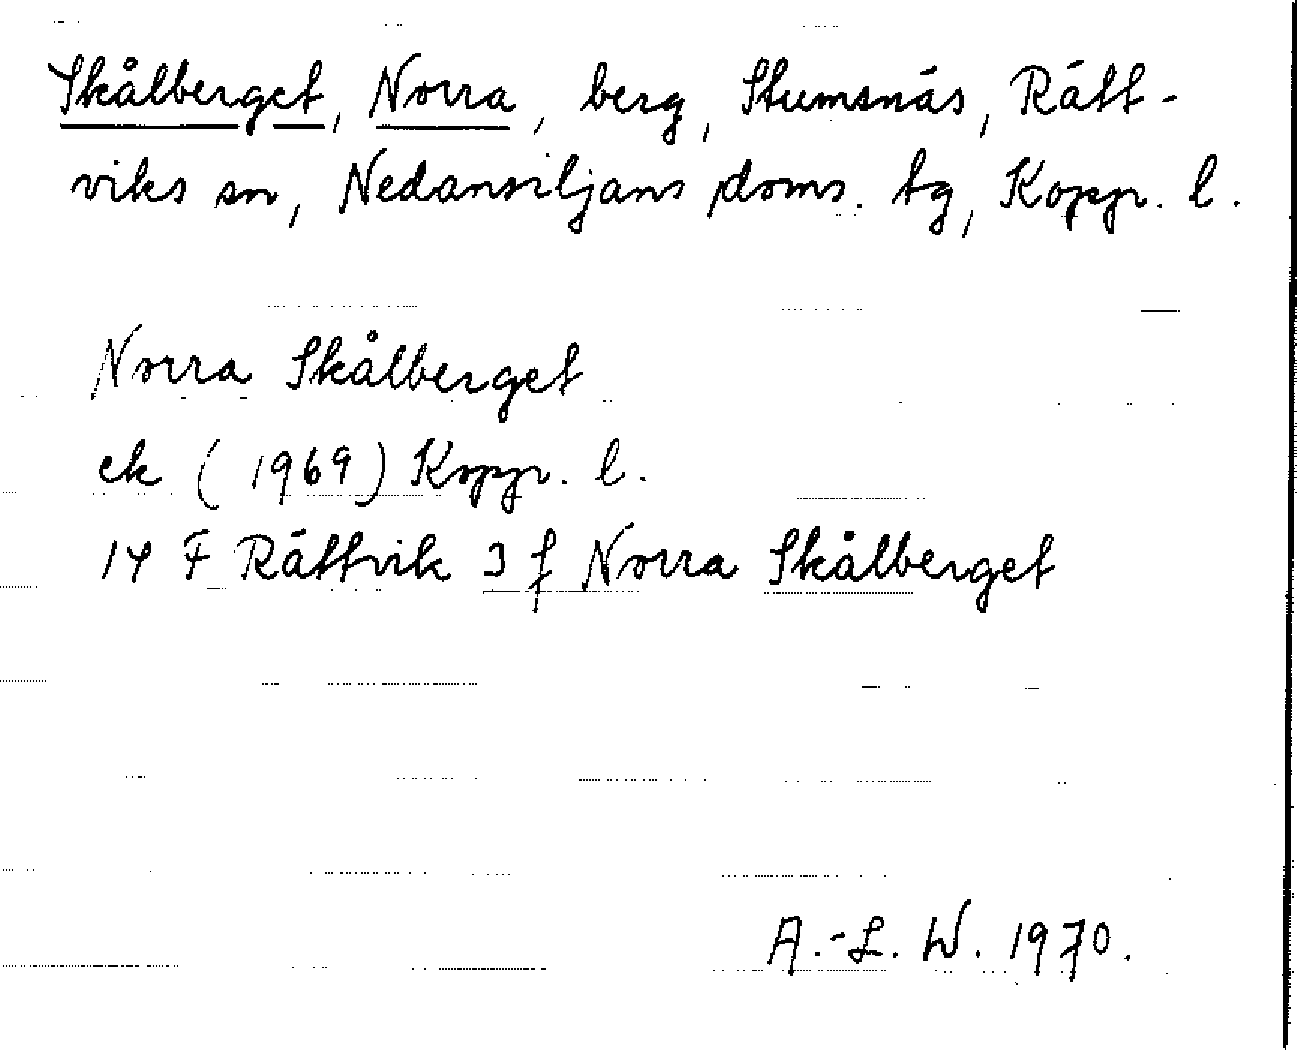 Skålberget, Norra, berg, Stumsnäs, Rätt-
viks sn, Nedansiljans doms. tg, Kopp. l.
Norra Skålberget
ek (1969) Kopp. l.
14 F Rättvik 3 f Norra Skålberget
A.-L. W. 1970.